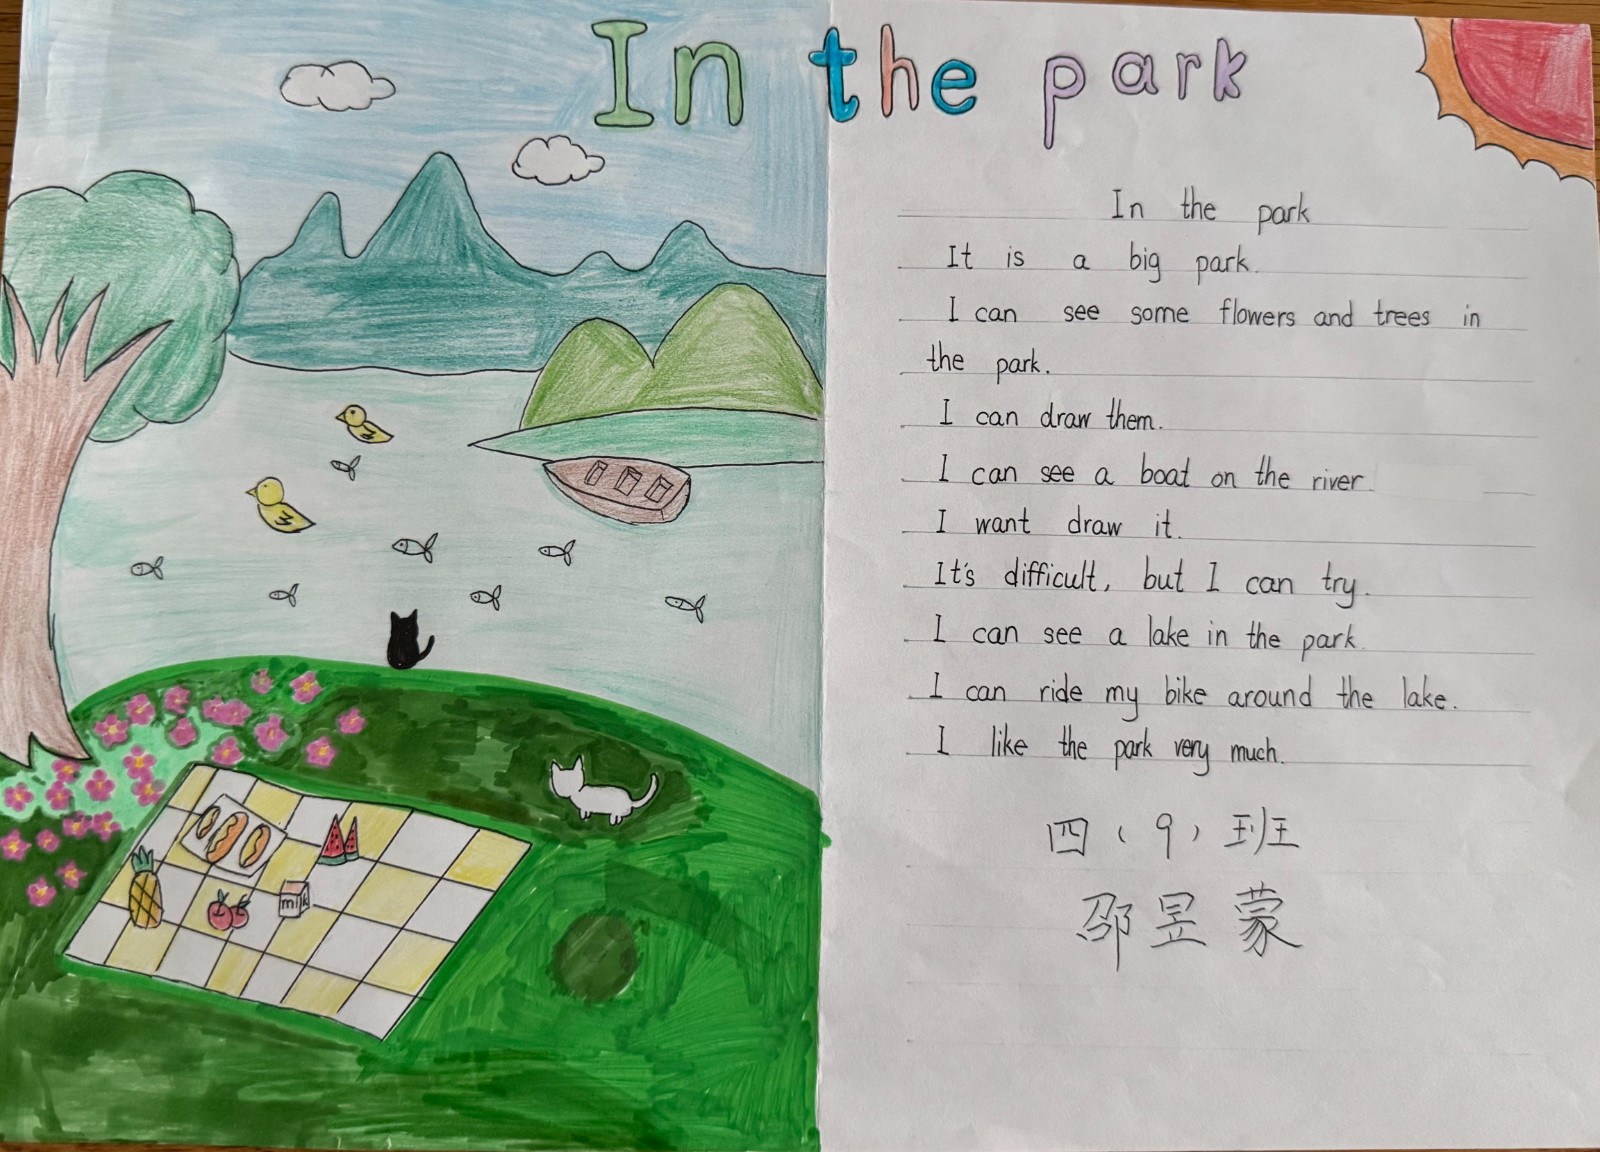 In the park
In the park
It is a big park.
I can see some flowers and trees in
the park.
I can draw them.
I can see a boat on the river.
I want draw it.
It's difficult, but I can try.
I can see a lake in the park.
I can ride my bike around the lake.
I like the park very much.
四（9）班
邵昱蒙
milk